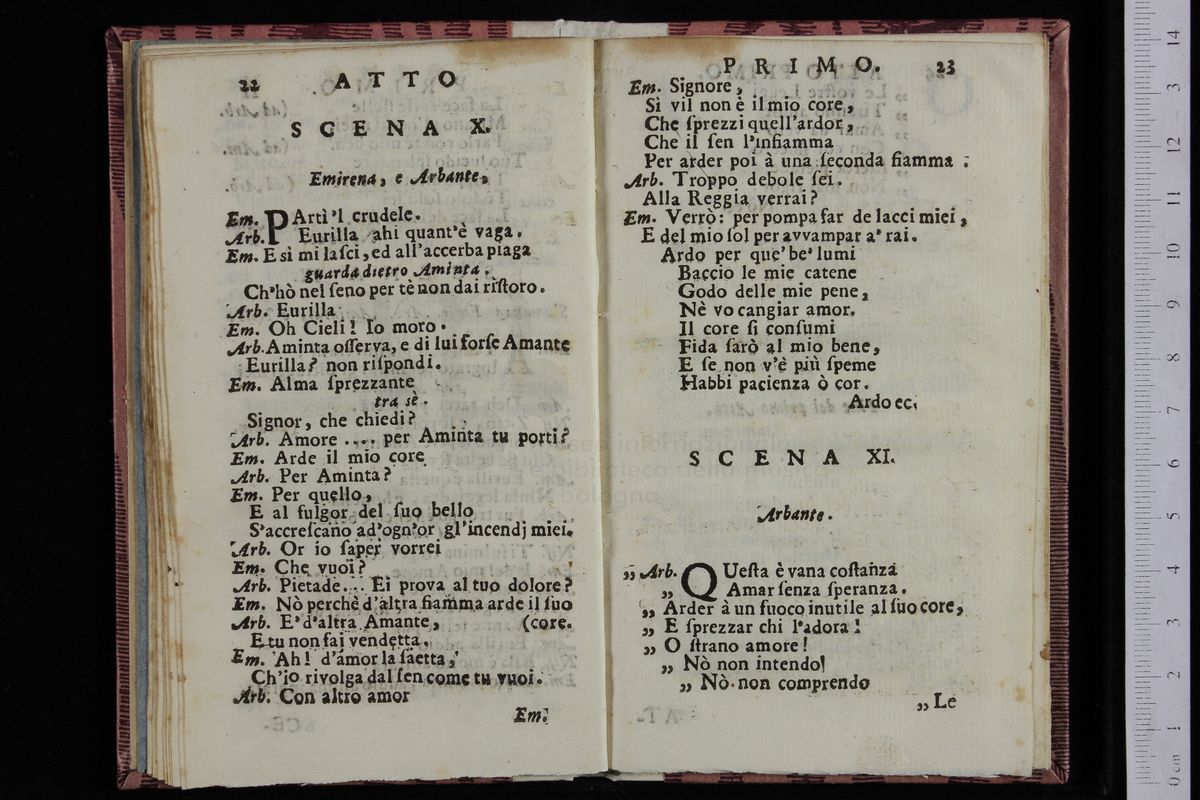 22 ATTO
SCENA X.
Emirena, e Arbante.
Em. PArtì'l crudele.
Arb. Eurilla ahi quant'è vaga.
Em. E sì mi lasci, ed all'accerba piaga
guarda dietro Aminta.
Ch'hò nel seno per tè non dai ristoro.
Arb. Eurilla
Em. Oh Cieli! Io moro.
Arb. Aminta osserva, e di lui forse Amante
Eurilla? non rispondi.
Em. Alma sprezzante
tra sè.
Signor, che chiedi?
Arb. Amore .... per Aminta tu porti?
Em. Arde il mio core
Arb. Per Aminta?
Em. Per quello,
E al fulgor del suo bello
S'accrescano ad'ogn'or gl'incendj miei.
Arb. Or io saper vorrei
Em. Che vuoi?
Arb. Pietade... Ei prova al tuo dolore?
Em. Nò perchè d'altra fiamma arde il suo
Arb. E' d'altra Amante, (core.
E tu non fai vendetta.
Em. Ah! d'amor la saetta,
Ch'io rivolga dal sen come tu vuoi.
Arb. Con altro amor
Em.
PRIMO. 23
Em. Signore,
Sì vil non è il mio core,
Che sprezzi quell'ardor,
Che il sen l'infiamma
Per arder poi à una seconda fiamma.
Arb. Troppo debole sei.
Alla Reggia verrai?
Em. Verrò: per pompa far de lacci miei,
E del mio sol per avvampar a' rai.
Ardo per que' be' lumi
Baccio le mie catene
Godo delle mie pene,
Nè vo cangiar amor.
Il core si consumi
Fida sarò al mio bene,
E se non v'è più speme
Habbi pacienza ò cor.
Ardo ec.
SCENA XI.
Arbante.
„ Arb. QUesta è vana costanza
„ Amar senza speranza.
„ Arder à un fuoco inutile al suo core,
„ E sprezzar chi l'adora!
„ O strano amore!
„ Nò non intendo!
„ Nò non comprendo
„ Le